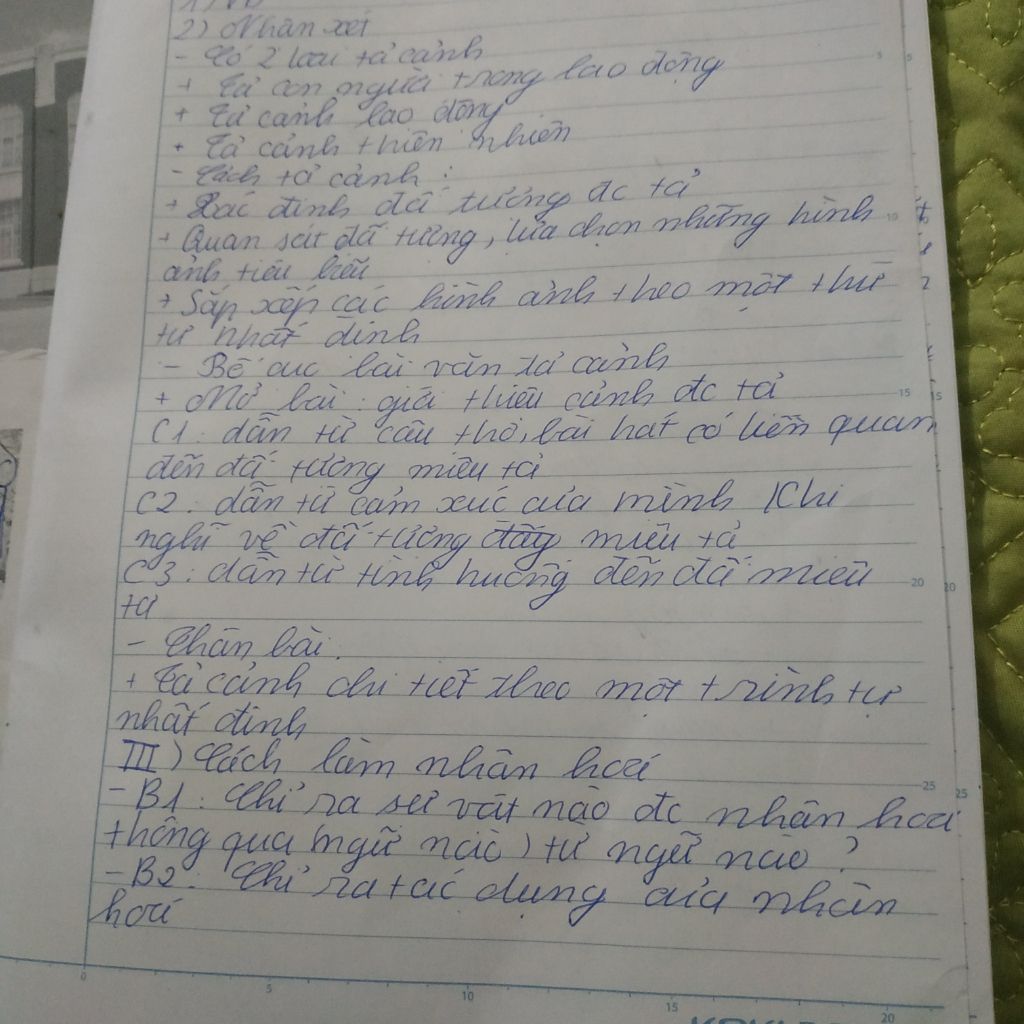 2) Nhận xét
- Có 2 loại tả cảnh
+ Tả con người trong lao động
+ Tả cảnh lao động
+ Tả cảnh thiên nhiên
- Cách tả cảnh :
+ Xác định đối tượng đc tả
+ Quan sát đối tượng, lựa chọn những hình
ảnh tiêu biểu
+ Sắp xếp các hình ảnh theo một thứ
tự nhất định
- Bố cục bài văn tả cảnh
+ Mở bài : giới thiệu cảnh đc tả
C1 : dẫn từ câu thơ, bài hát có liên quan
đến đối tượng miêu tả
C2 : dẫn từ cảm xúc của mình khi
nghĩ về đối tượng miêu tả
C3 : dẫn từ tình huống đến đối miêu
tả
- Thân bài :
+ Tả cảnh chi tiết theo một trình tự
nhất định
III) Cách làm nhân hoá
- B1 : Chỉ ra sự vật nào đc nhân hoá
thông qua (ngữ nào) từ ngữ nào ?
- B2 : Chỉ ra tác dụng của nhân
hoá